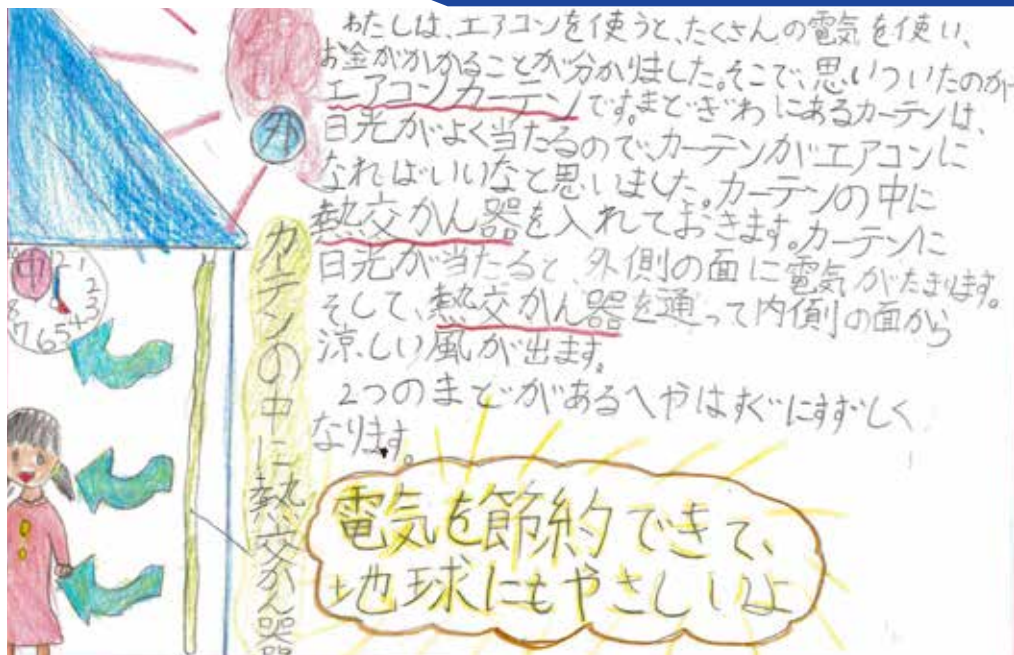 わたしは、エアコンを使うと、たくさんの電気を使い、
お金がかかることが分かりました。そこで、思いついたのが
エアコンカーテンです。まどぎわにあるカーテンは、
日光がよく当たるので、カーテンがエアコンに
なればいいなと思いました。カーテンの中に
熱交かん器を入れておきます。カーテンに
日光が当たると、外側の面に電気がたまります。
そして、熱交かん器を通って内側の面から
涼しい風が出ます。
2つのまどがあるへやはすぐにすずしく
なります。
外
中
12 1
2
3
4
5
6
7
8
カーテンの中に熱交かん器
電気を節約できて、
地球にもやさしいよ